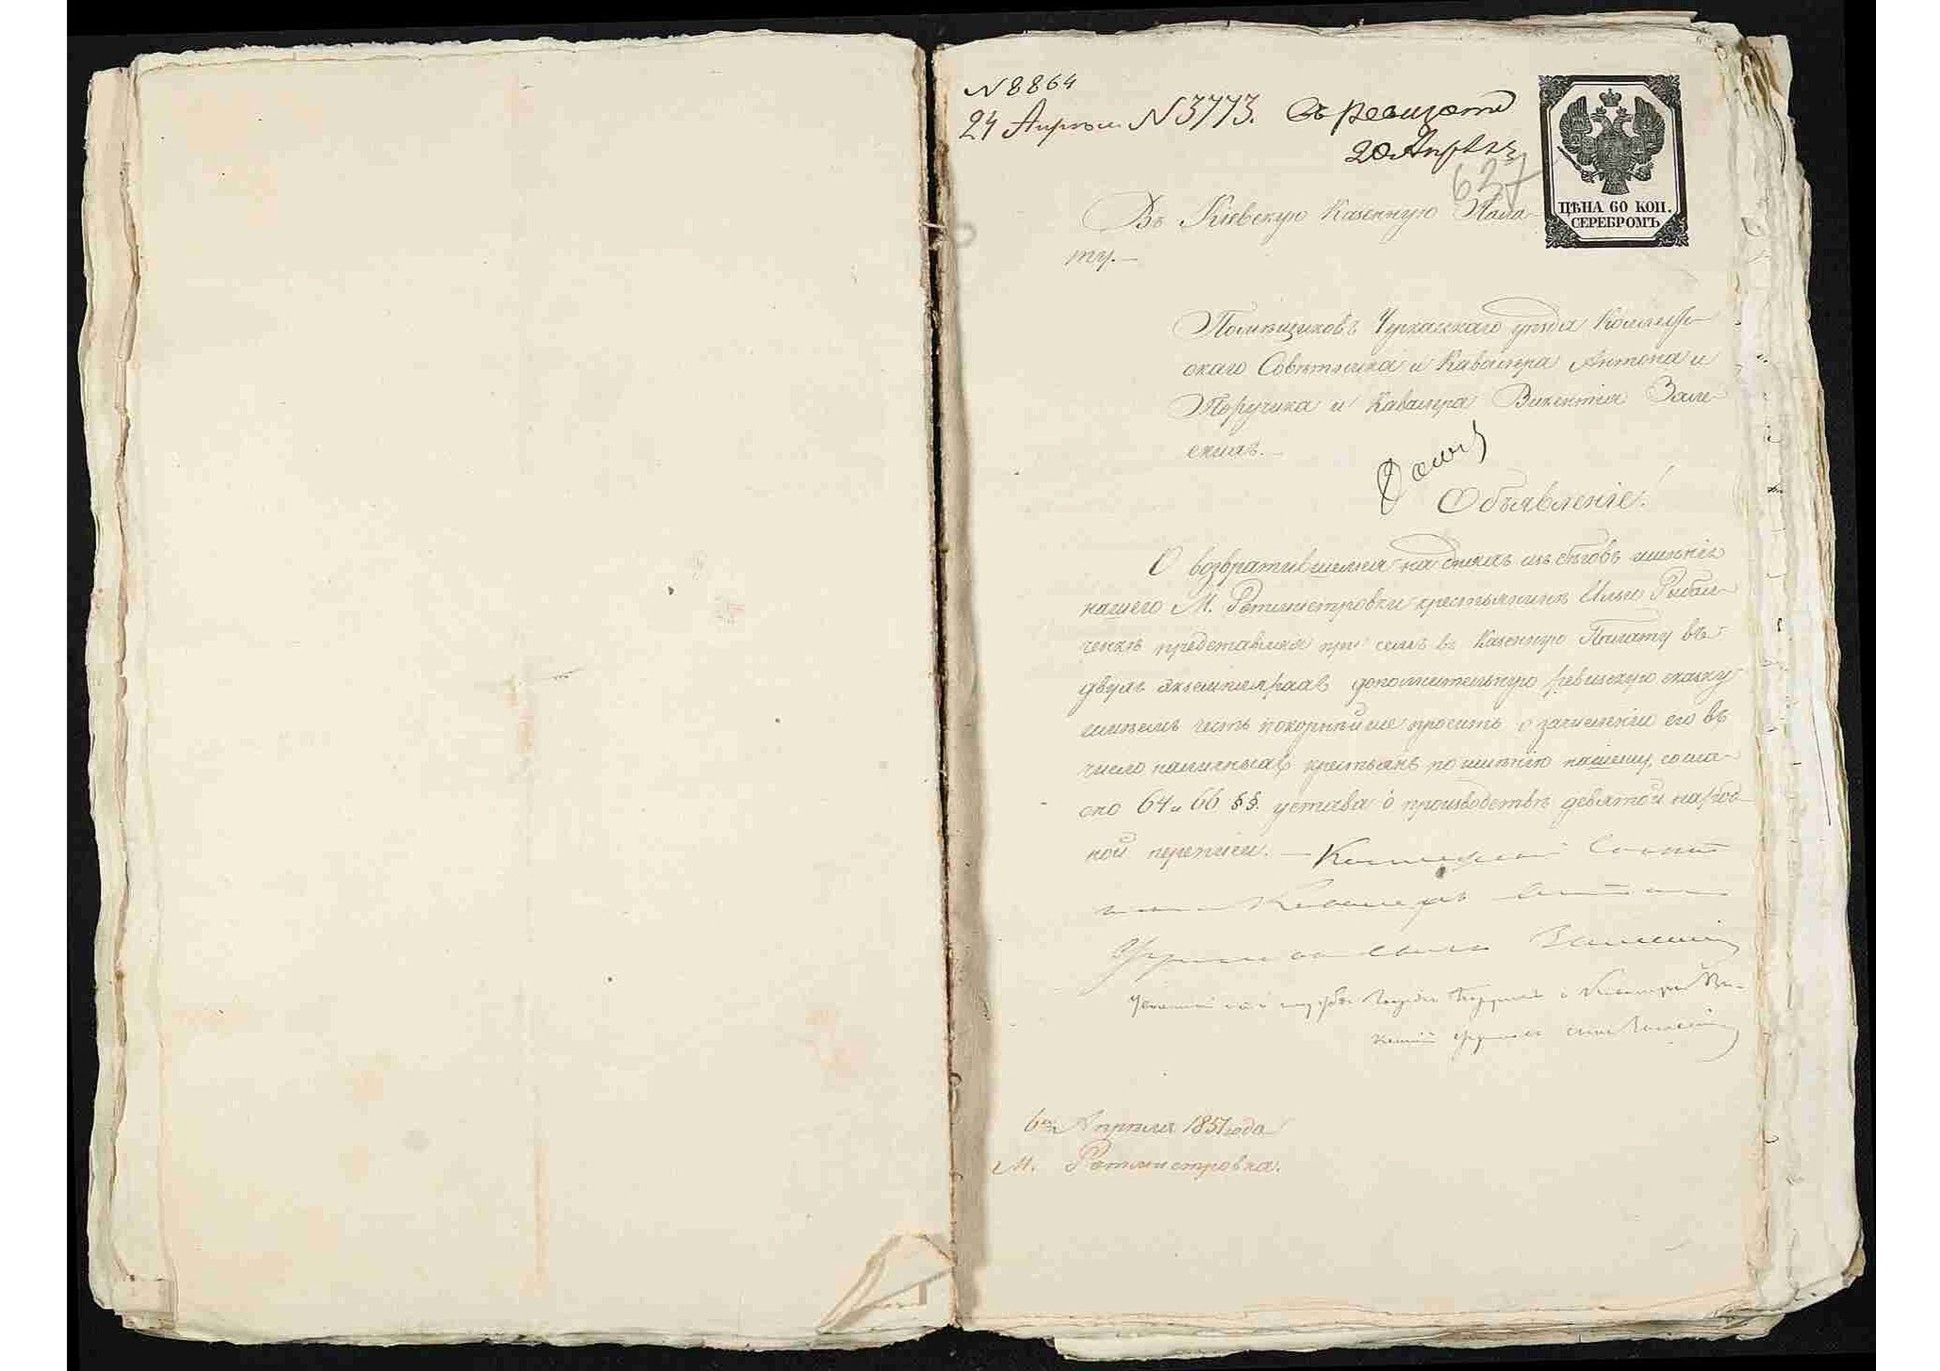 N 8864
24 Апрѣля N 3773.
20 Апрѣля
637
ЦѢНА 60 КОП.
СЕРЕБРОМЪ
Въ Кіевскую Казенную Пала-
ту.—
Помѣщиковъ Черкаскаго уѣзда Коллеж-
скаго Совѣтника и Кавалера Антона и
Поручика и Кавалера Викентія Зале-
скихъ.—
Объявленіе!
О возвратившемся изъ бѣговъ имѣнія
нашего М. Ротмистровки крестьянинѣ Ильи Рыбал-
ченкѣ представляя при семъ въ Казенную Палату въ
двухъ экземплярахъ дополнительную ревизскую сказку
имѣемъ честь покорнѣйше просить о зачисленіи его въ
число наличныхъ крестьянъ по имѣнію нашему, согла-
сно 64 и 66 §§. устава о производствѣ девятой народ-
ной переписи.— Коллежскій Совѣт
Кавалеръ Антонъ
Залескій
Поручикъ и Кавалеръ Ви-
кентій
6го Апрѣля 1851 года
М. Ротмистровка.